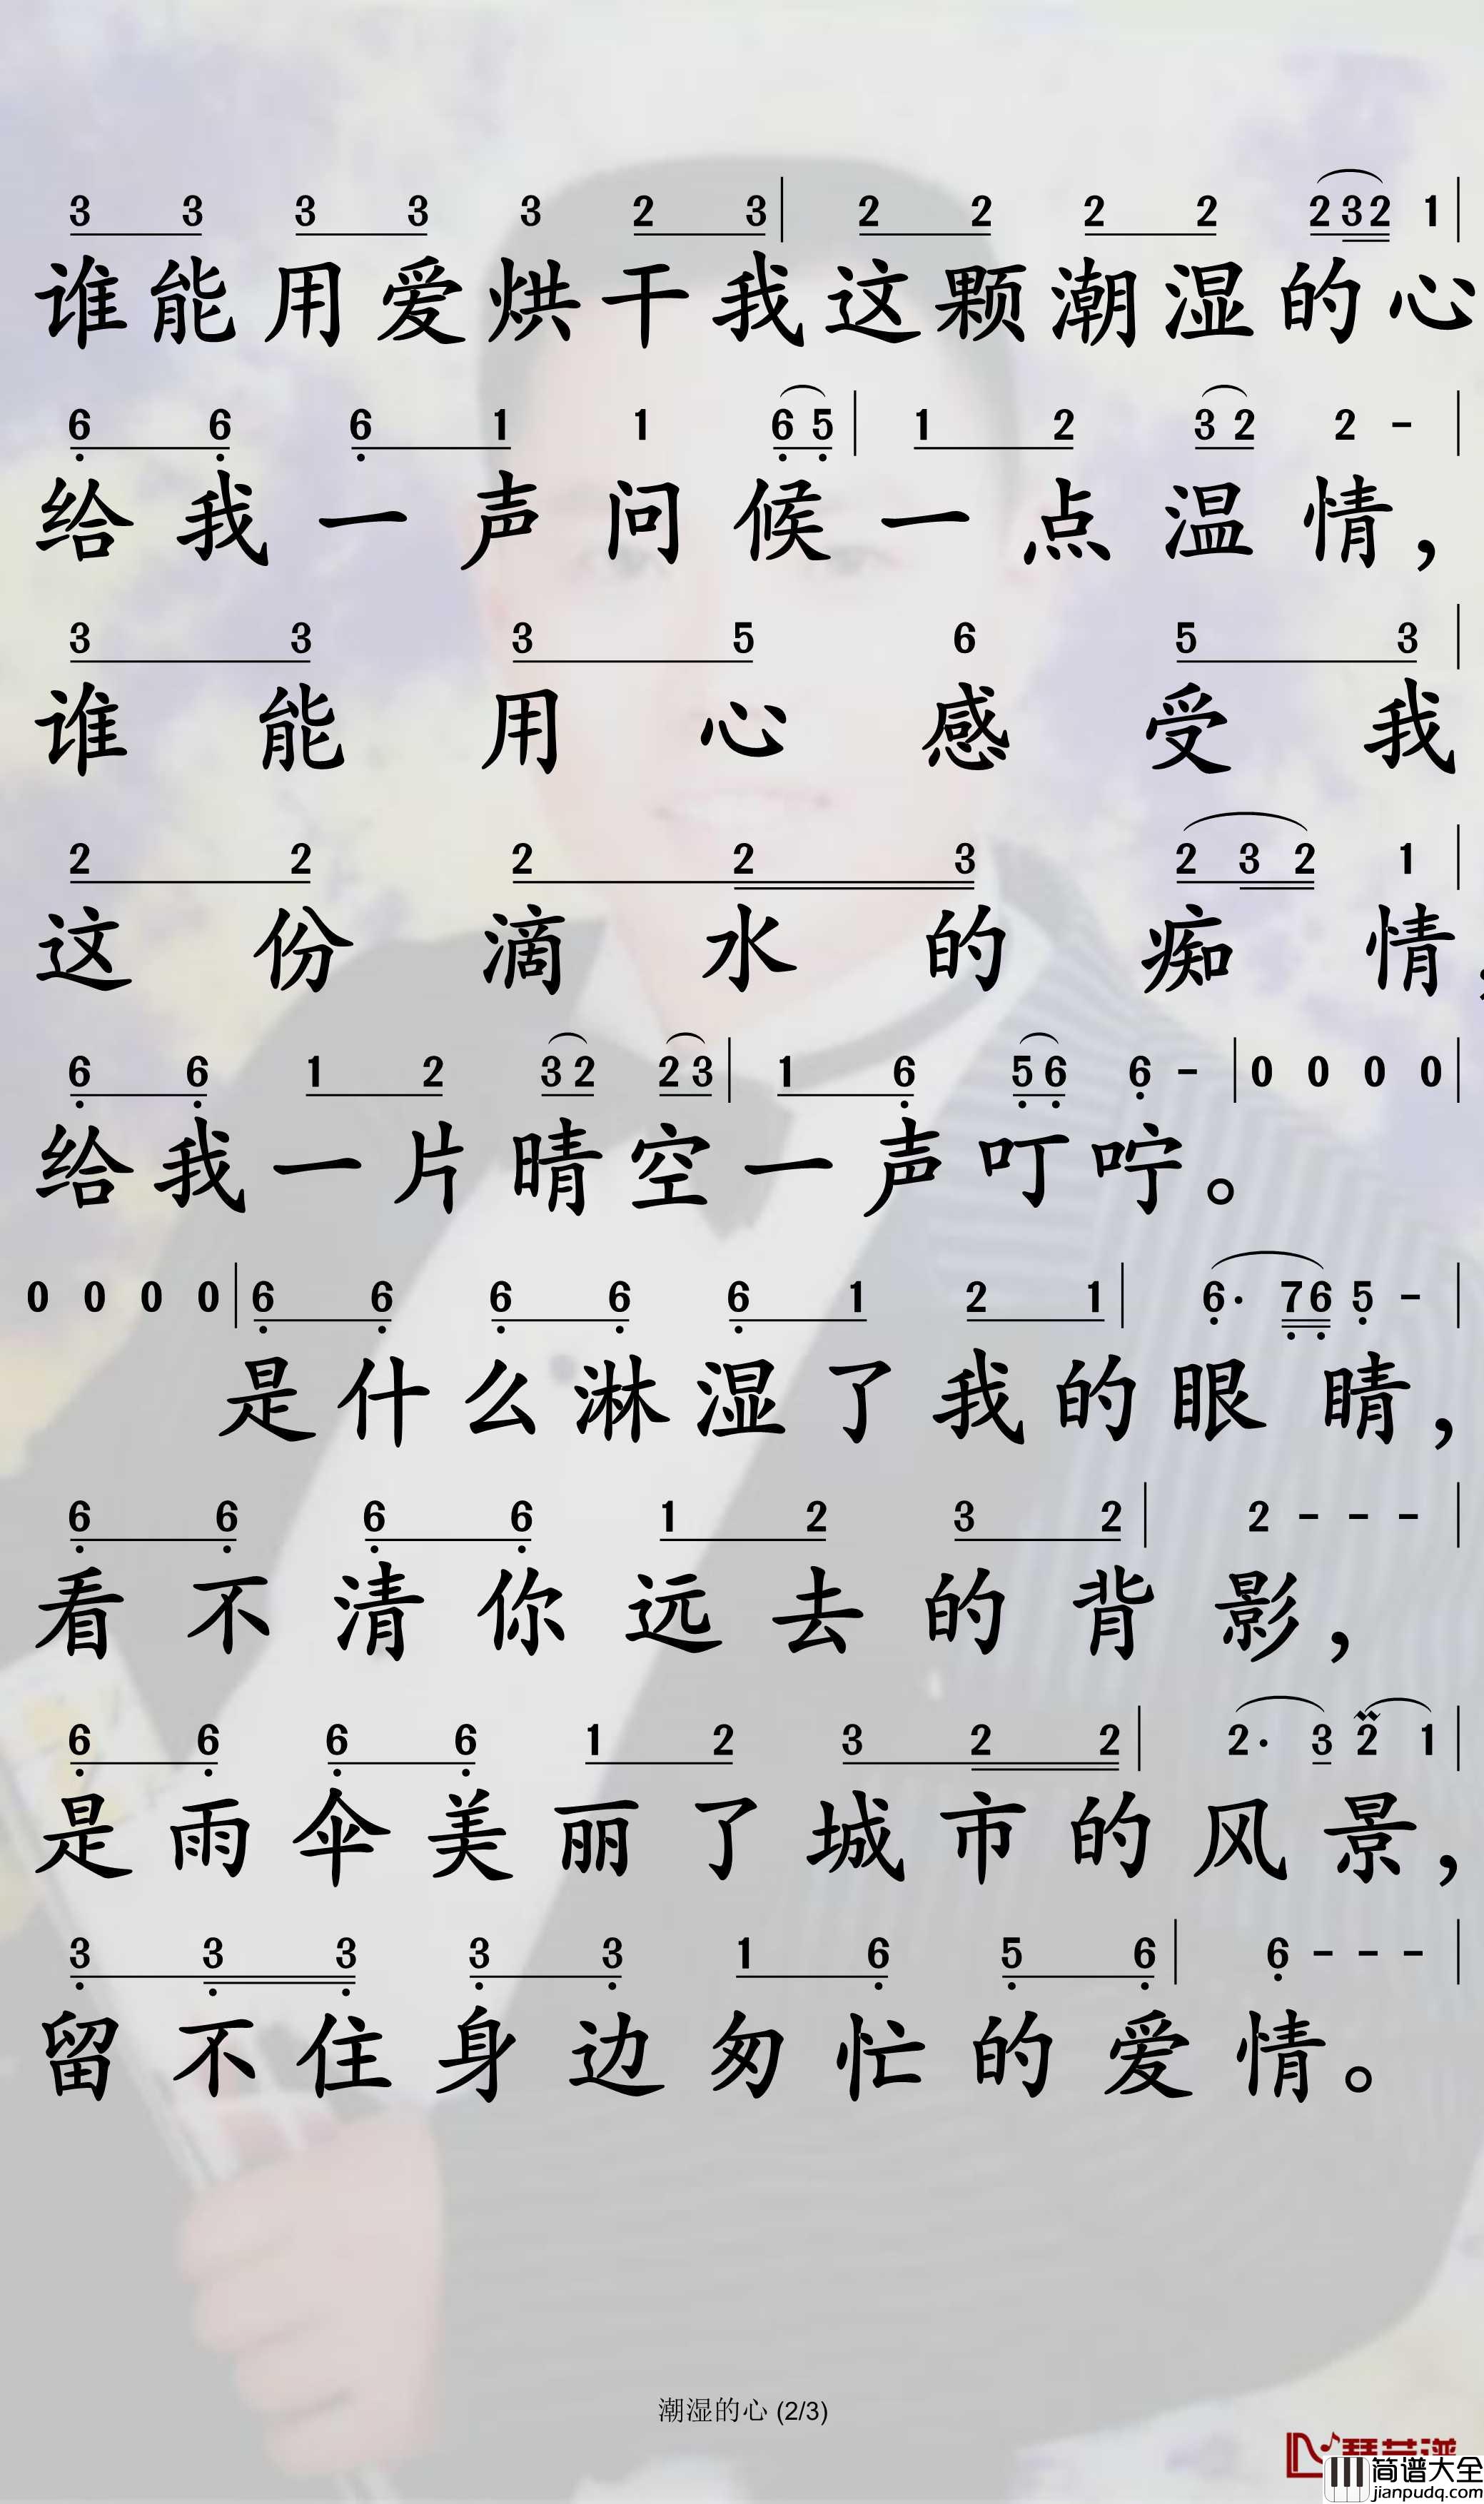 3 3 3 3 3 2 3 | 2 2 2 2 2 3 2 1 |
谁能用爱烘干我这颗潮湿的心
6 6 6 1 1 6 5 | 1 2 3 2 2 - |
给我一声问候一点温情，
3 3 3 5 6 5 3 |
谁能用心感受我
2 2 2 2 3 2 3 2 1 |
这份滴水的痴情，
6 6 1 2 3 2 2 3 | 1 6 5 6 6 - | 0 0 0 0 |
给我一片晴空一声叮咛。
0 0 0 0 | 6 6 6 6 6 1 2 1 | 6· 7 6 5 - |
是什么淋湿了我的眼睛，
6 6 6 6 1 2 3 2 | 2 - - - |
看不清你远去的背影，
6 6 6 6 1 2 3 2 2 | 2· 3 2 1 |
是雨伞美丽了城市的风景，
3 3 3 3 3 1 6 5 6 | 6 - - - |
留不住身边匆忙的爱情。
潮湿的心 (2/3)
简谱大全
jianpudq.com